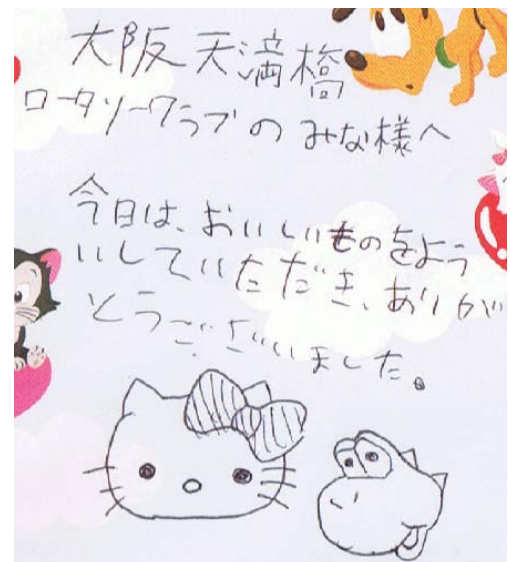 大阪天満橋
ロータリークラブのみな様へ
今日は、おいしいものをよう
いしていただき、ありが
とうございました。